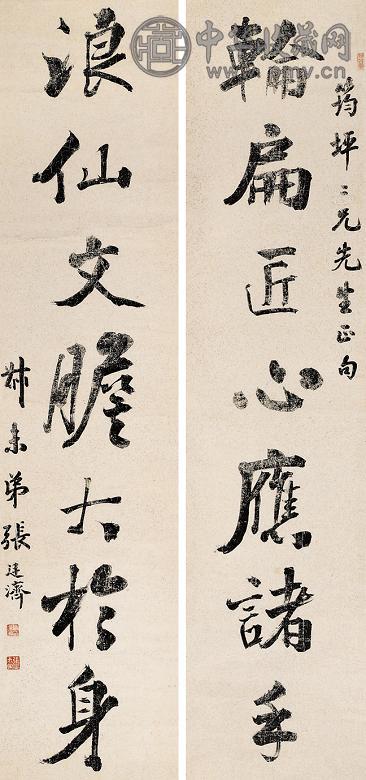 筠坪二兄先生正句
輪扁匠心應諸手
浪仙文膽大於身
叔未弟張廷濟
中华收藏网